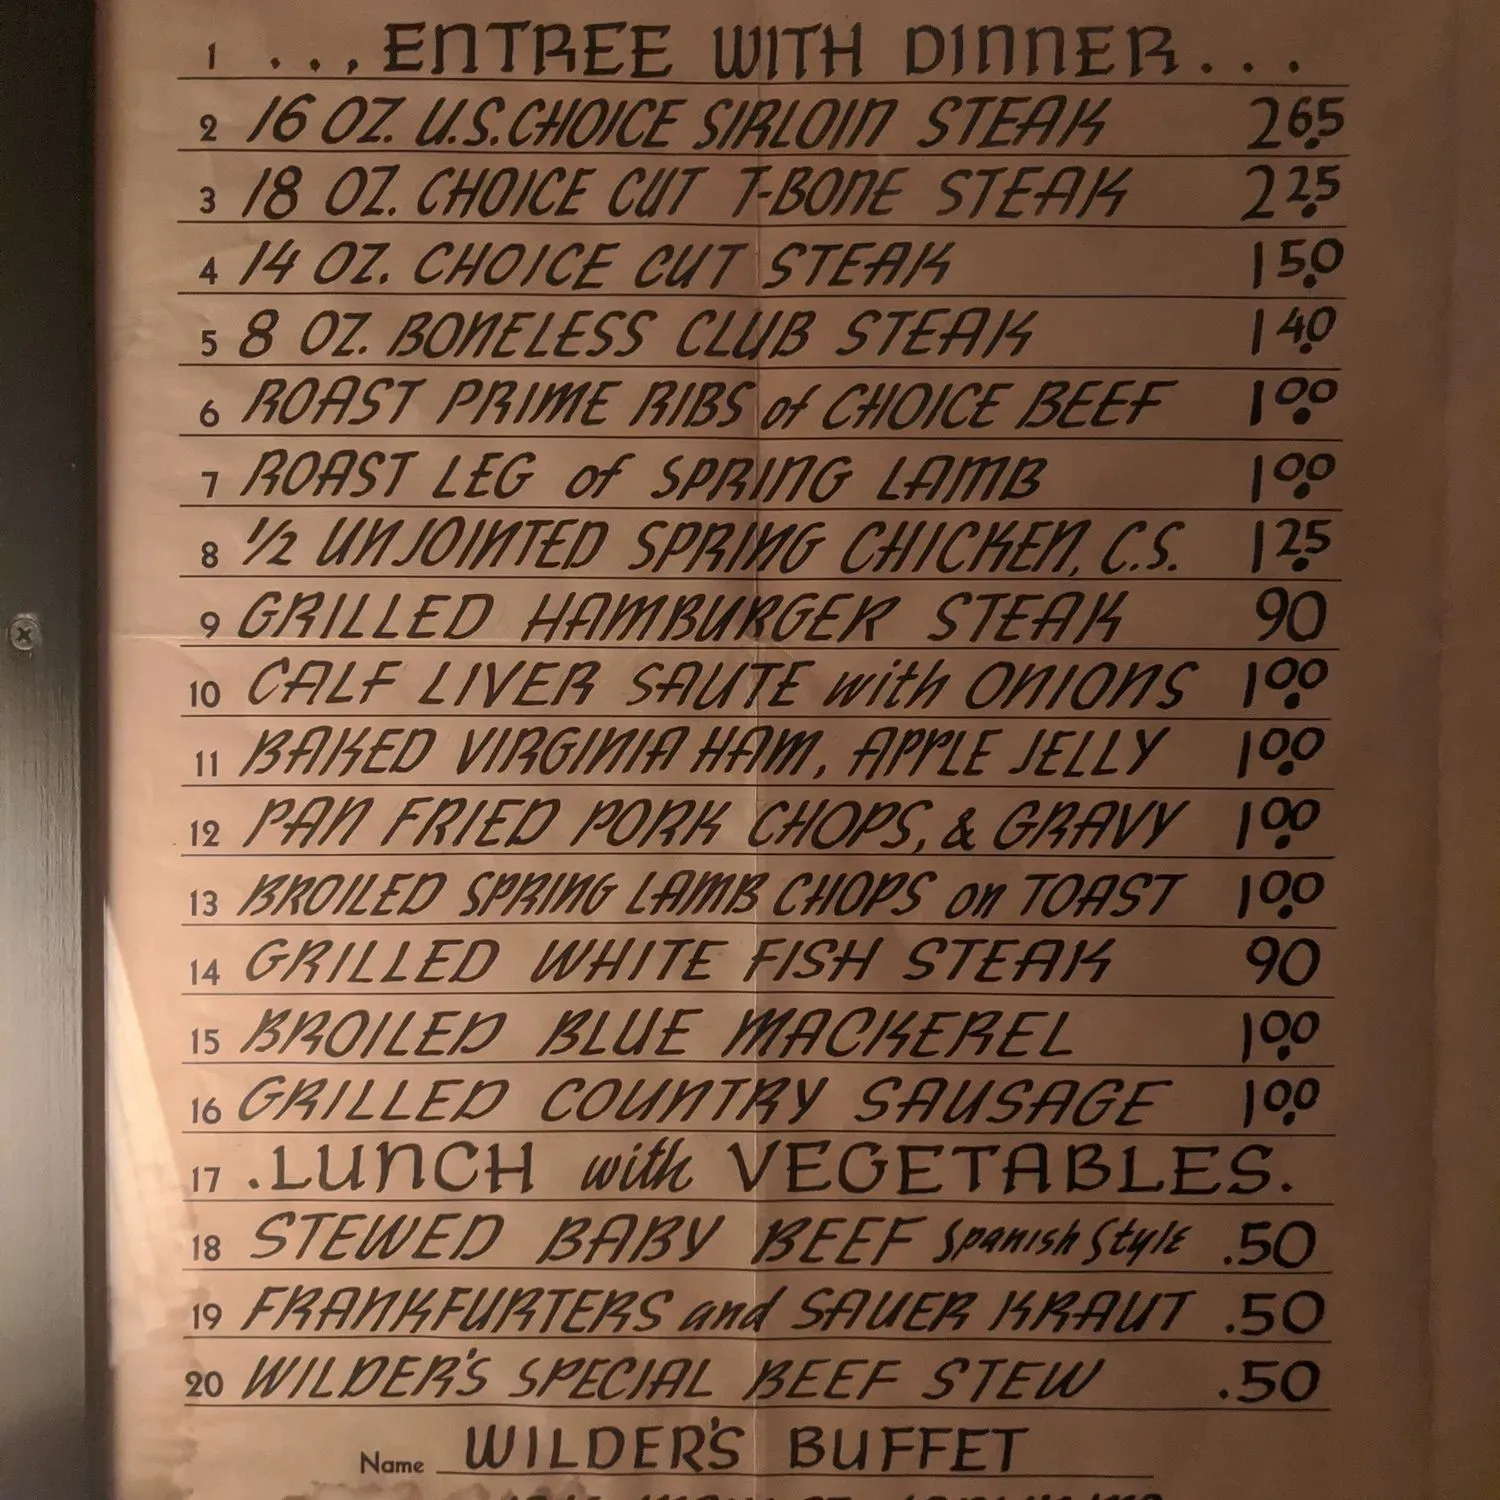 1 ...ENTREE WITH DINNER...
2 16 OZ. U.S. CHOICE SIRLOIN STEAK 2 65
3 18 OZ. CHOICE CUT T-BONE STEAK 2 25
4 14 OZ. CHOICE CUT STEAK 1 50
5 8 OZ. BONELESS CLUB STEAK 1 40
6 ROAST PRIME RIBS of CHOICE BEEF 1 00
7 ROAST LEG of SPRING LAMB 1 00
8 1/2 UNJOINTED SPRING CHICKEN, C.S. 1 25
9 GRILLED HAMBURGER STEAK 90
10 CALF LIVER SAUTE with ONIONS 1 00
11 BAKED VIRGINIA HAM, APPLE JELLY 1 00
12 PAN FRIED PORK CHOPS, & GRAVY 1 00
13 BROILED SPRING LAMB CHOPS on TOAST 1 00
14 GRILLED WHITE FISH STEAK 90
15 BROILED BLUE MACKEREL 1 00
16 GRILLED COUNTRY SAUSAGE 1 00
17 .LUNCH with VEGETABLES.
18 STEWED BABY BEEF Spanish Style .50
19 FRANKFURTERS and SAUER KRAUT .50
20 WILDER'S SPECIAL BEEF STEW .50
Name WILDER'S BUFFET